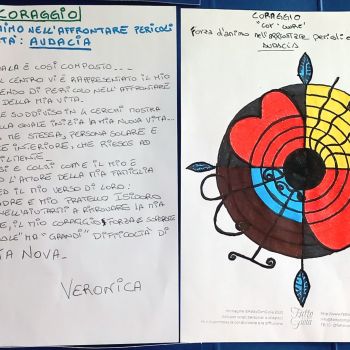 CORAGGIO
ANIMO NELL'AFFRONTARE PERICOLI
TÀ: AUDACIA
ALA È COSÌ COMPOSTO...
L CENTRO VI È RAPPRESENTATO IL MIO
ENDO DI PERICOLO NELL'AFFRONTARE
DELLA MIA VITA.
È SUDDIVISO IN 4 CERCHI MOSTRA
LA QUALE INIZIA LA MIA NUOVA VITA...
ME STESSA, PERSONA SOLARE E
E INTERIORE, CHE RIESCE AD
E COLPI COME IL MIO È
L'AMORE DELLA MIA FAMIGLIA
ED IL MIO VERSO DI LORO:
DRE E MIO FRATELLO ISIDORO
NELL'AIUTARMI A RITROVARE LA MIA
E, IL MIO CORAGGIO, FORZA E
OLE" MA "GRANDI" DIFFICOLTÀ DI
TA NOVA...
VERONICA
CORAGGIO
"COR-CUORE"
Forza d'animo nell'affrontare pericoli e
AUDACIA
Fatto
Gaia